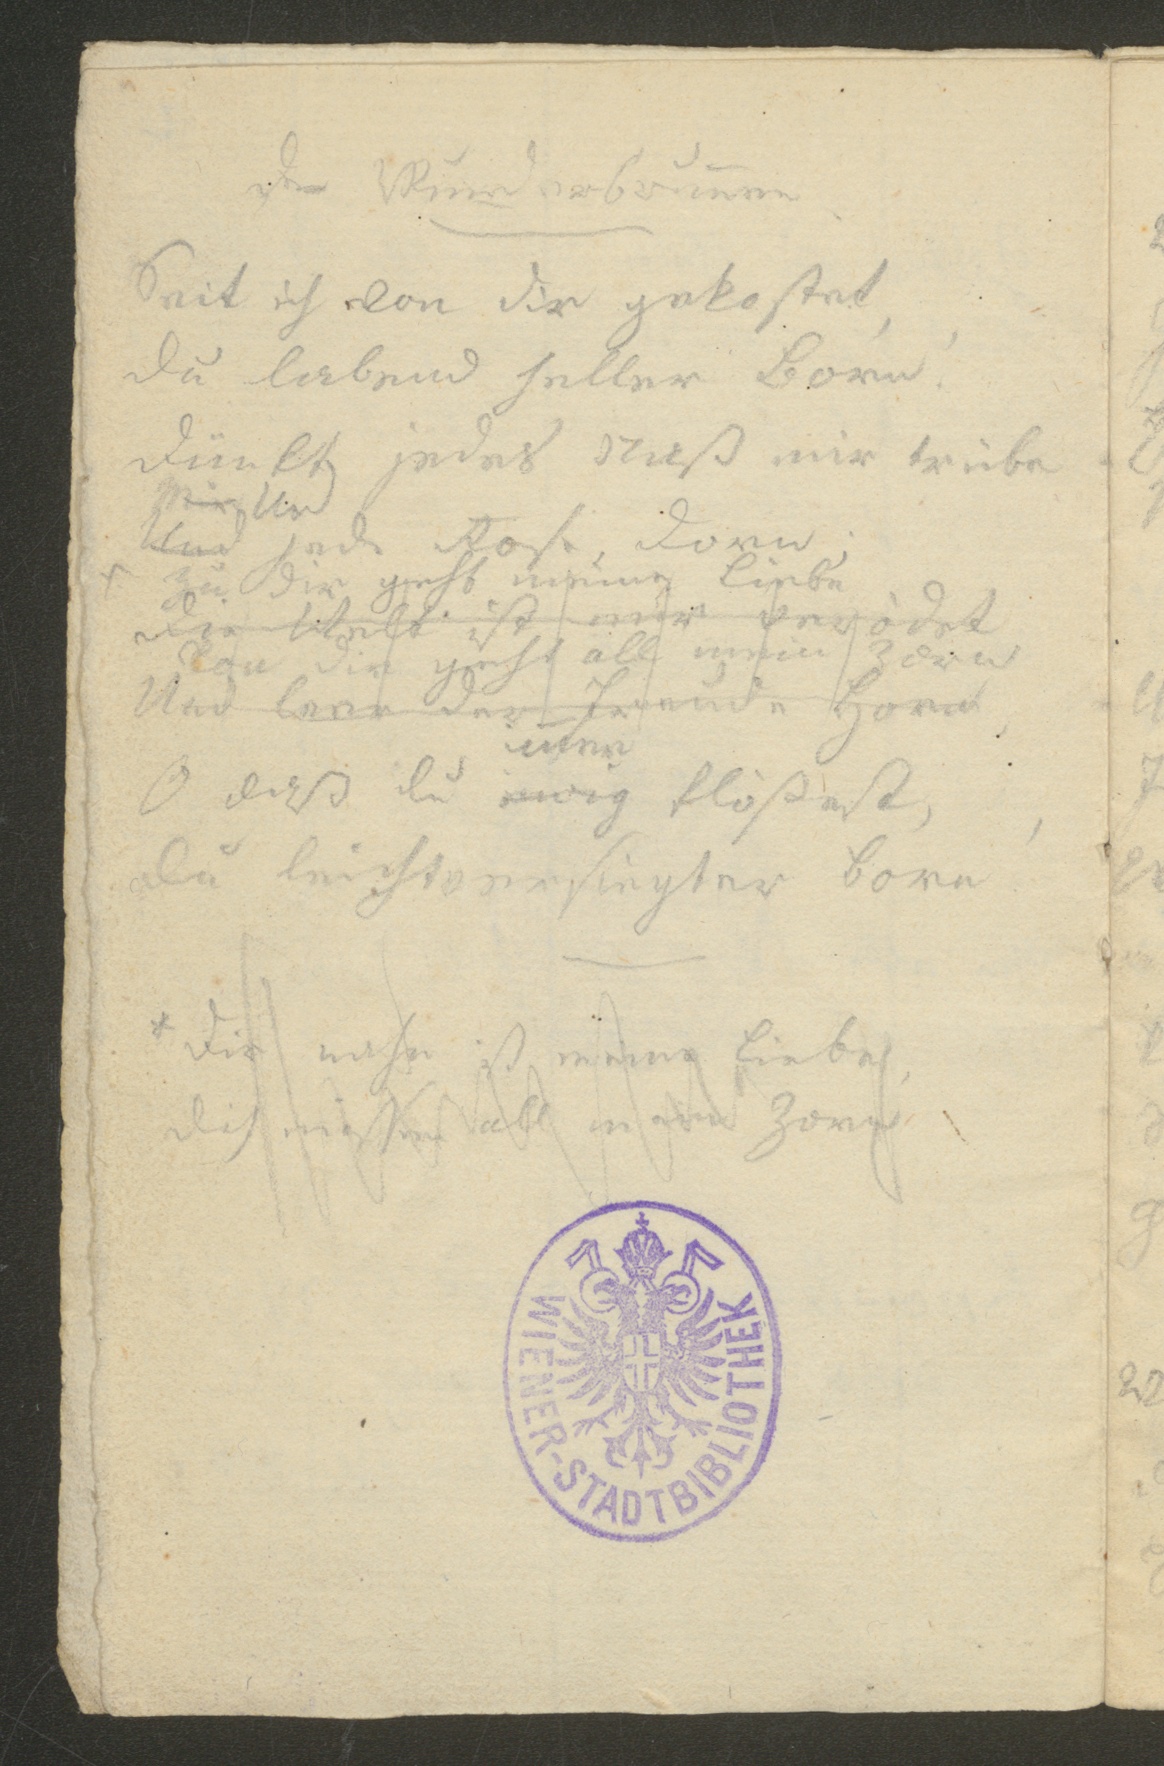 Der Wunderbrunnen
Seit ich von dir gekostet,
Du labend heller Born!
Dünkt jedes Naß mir trübe
Mir, Und
Und jede Rose, Dorn;
* Zu dir geht meine Liebe
Die Welt ist mir verödet
Von dir geht all mein Zorn
Und leer der Freude Horn,
immer
O daß du ewig flößest,
Du leichtversiegter Born!
* Dir nahe ist meine Liebe,
Dich all mein Zorn
WIENER-STADTBIBLIOTHEK